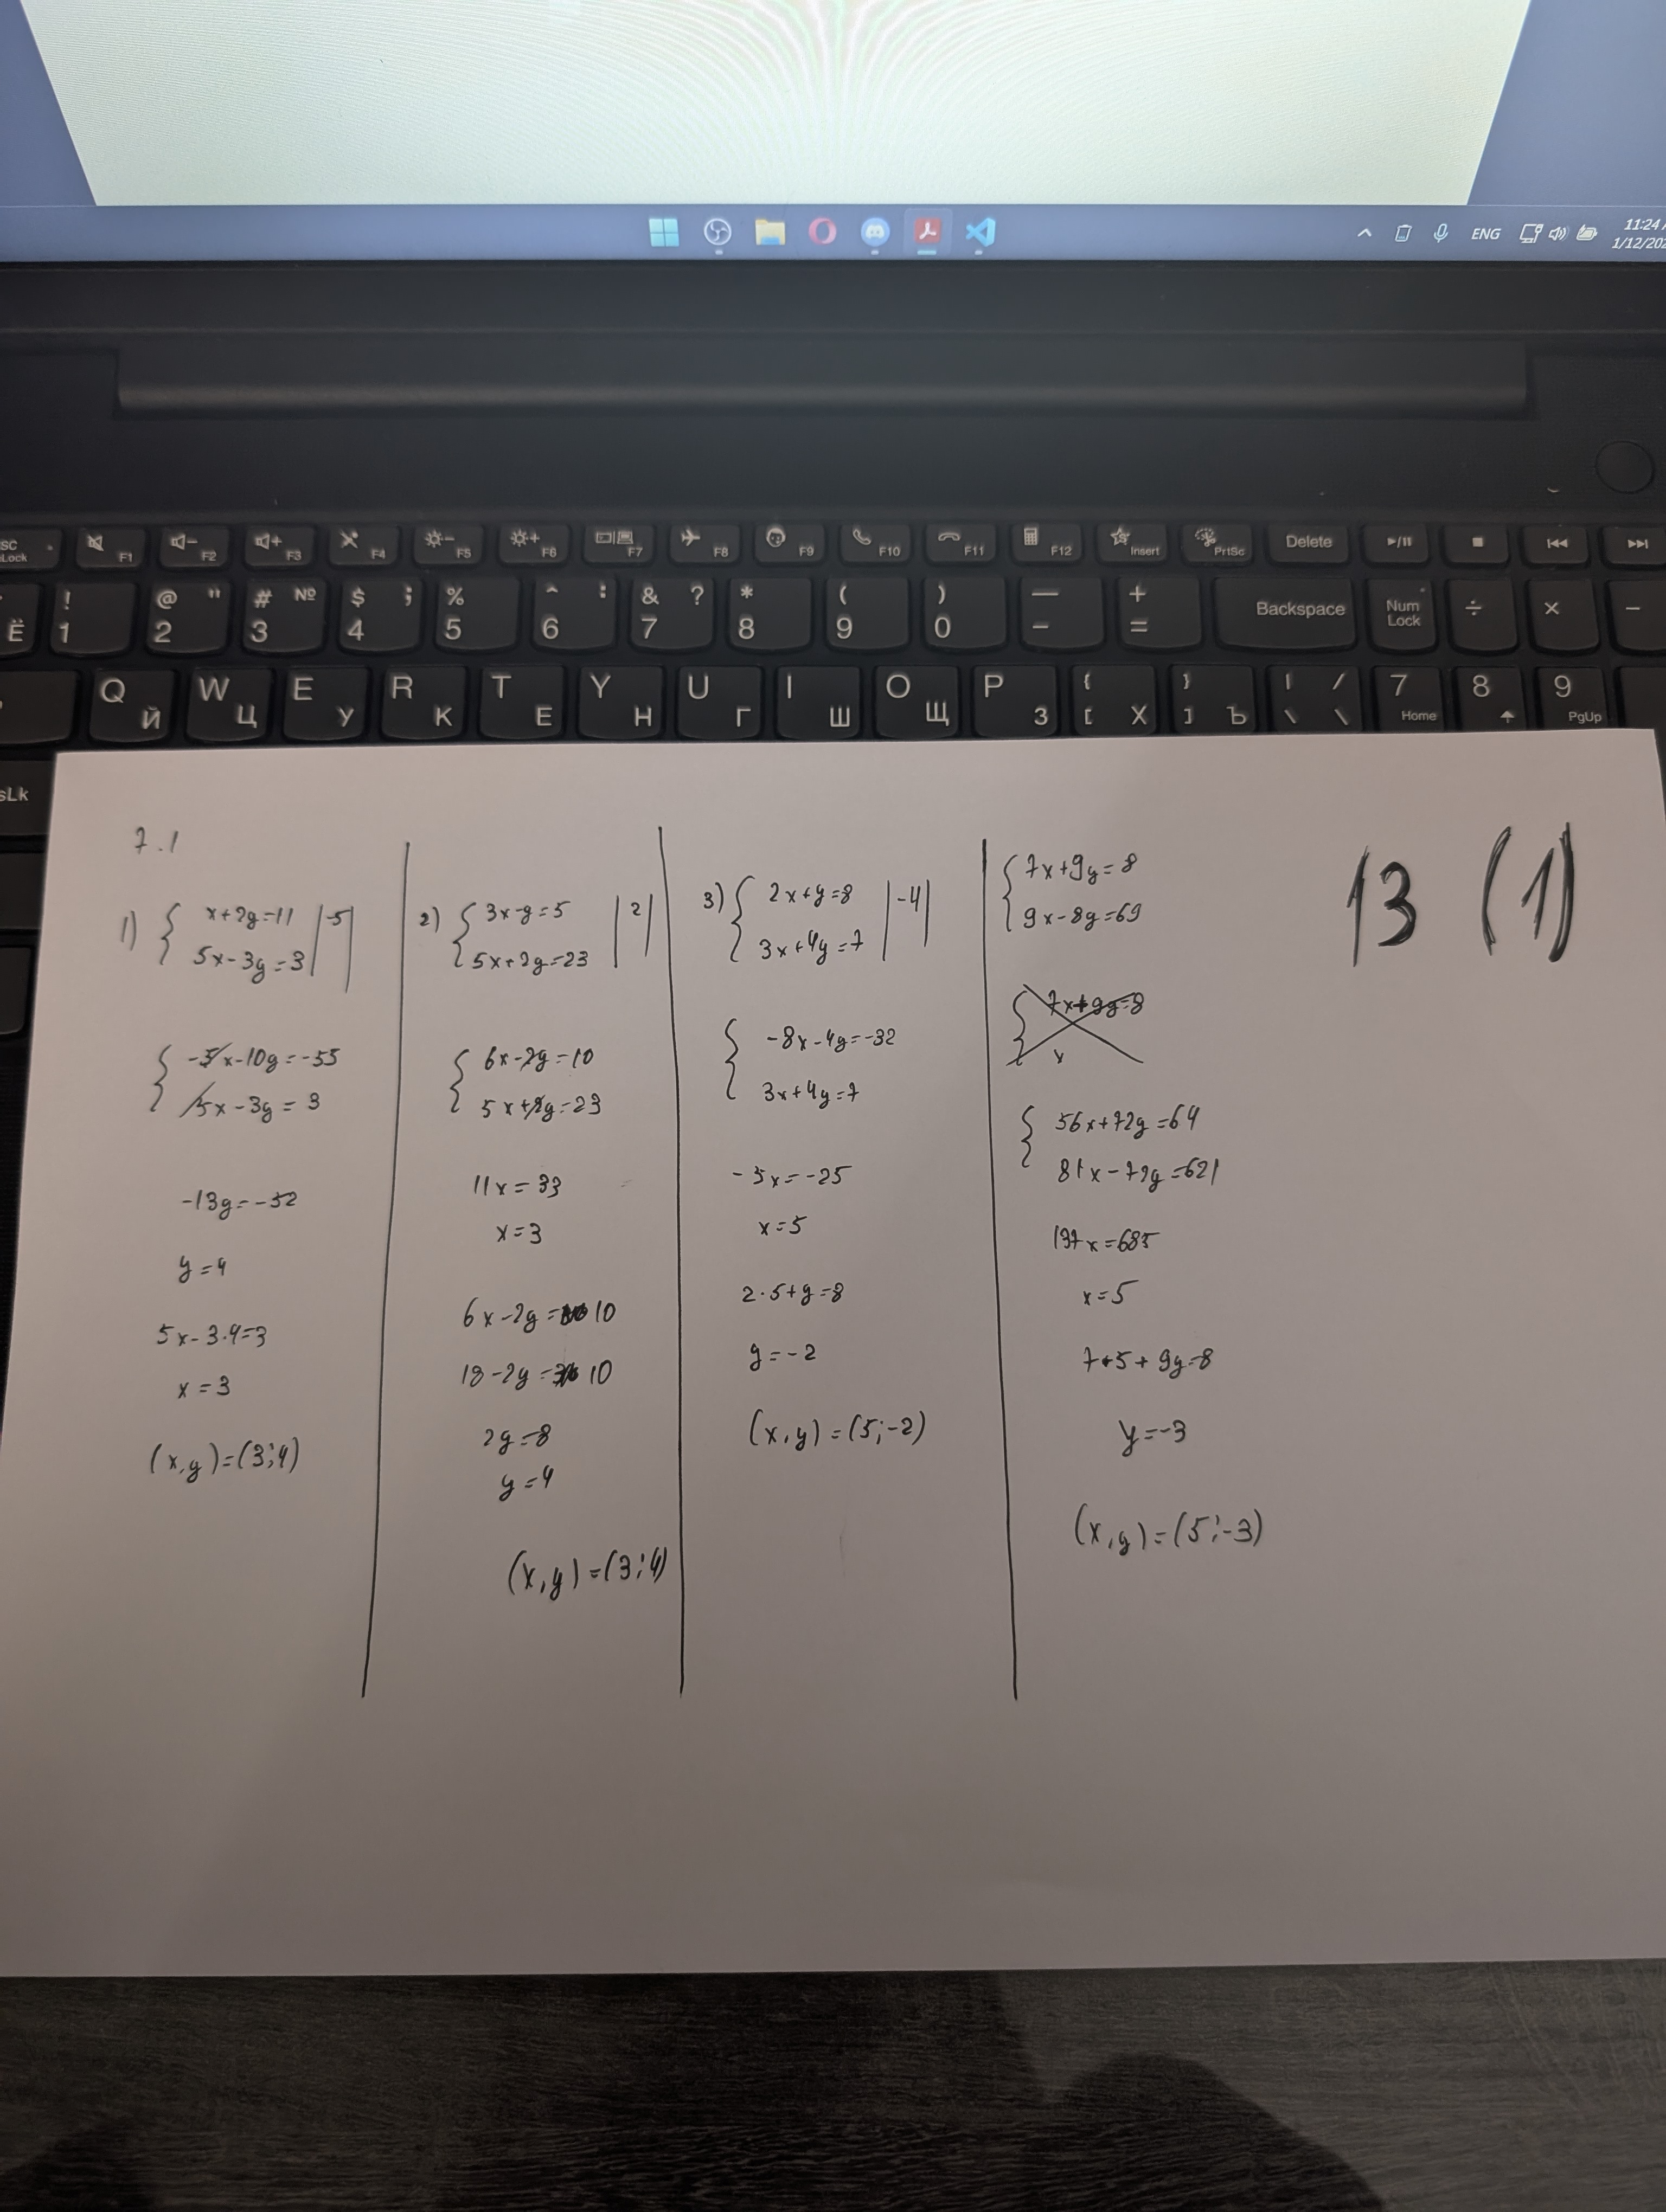 ENG
11:24
1/12/202
SC Lock
F1 F2 F3 F4 F5 F6 F7 F8 F9 F10 F11 F12 Insert PrtSc Delete
Ё ! 1 @ " 2 # № 3 $ ; 4 % 5 ^ : 6 & ? 7 * 8 ( 9 ) 0 — - + = Backspace Num Lock ÷ × −
Q Й W Ц E У R К T Е Y Н U Г I Ш O Щ P З { [ Х } ] Ъ | / \ \ 7 Home 8 9 PgUp
sLk
7.1
1) { x+2y=11 |-5|
5x-3y=3
{ -5x-10y=-55
5x-3y=3
-13y=-52
y=4
5x-3·4=3
x=3
(x,y)=(3;4)
2) { 3x-y=5 |2|
5x+2y=23
{ 6x-2y=10
5x+2y=23
11x=33
x=3
6x-2y=10
18-2y=10
2y=8
y=4
(x,y)=(3;4)
3) { 2x+y=8 |-4|
3x+4y=7
{ -8x-4y=-32
3x+4y=7
-5x=-25
x=5
2·5+y=8
y=-2
(x,y)=(5;-2)
{ 7x+9y=8
9x-8y=69
{ 7x+9y=8
x
{ 56x+72y=64
81x-72y=621
137x=685
x=5
7·5+9y=8
y=-3
(x,y)=(5;-3)
13 (1)